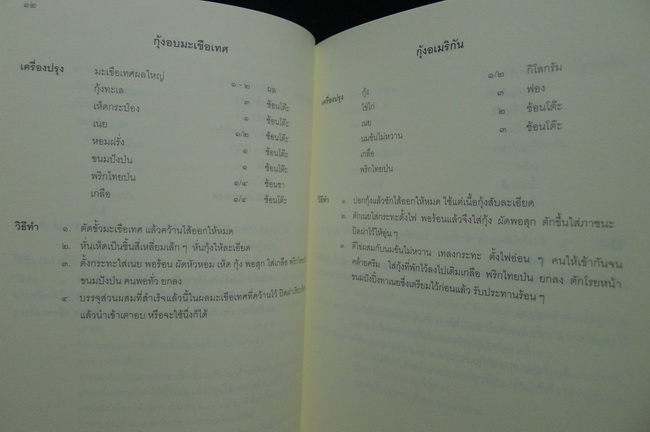 ๑๒
กุ้งอบมะเขือเทศ
เครื่องปรุง มะเขือเทศผลใหญ่
กุ้งทะเล ๑ - ๒ ผล
เห็ดกระป๋อง ๓ ช้อนโต๊ะ
เนย ๑ ช้อนโต๊ะ
หอมฝรั่ง ๑/๒ ช้อนโต๊ะ
ขนมปังป่น ๑ ช้อนโต๊ะ
พริกไทยป่น ๑ ช้อนโต๊ะ
เกลือ ๑/๔ ช้อนชา
๑/๔ ช้อนโต๊ะ
วิธีทำ ๑. ตัดขั้วมะเขือเทศ แล้วคว้านไส้ออกให้หมด
๒. หั่นเห็ดเป็นชิ้นสี่เหลี่ยมเล็ก ๆ หั่นกุ้งให้ละเอียด
๓. ตั้งกระทะใส่เนย พอร้อน ผัดหัวหอม เห็ด กุ้ง พอสุก ใส่เกลือ
ขนมปังป่น คนพอทั่ว ยกลง
๔. บรรจุส่วนผสมที่สำเร็จแล้วนี้ในผลมะเขือเทศที่คว้านไว้
แล้วนำเข้าเตาอบ หรือจะใช้นึ่งก็ได้
กุ้งอเมริกัน
เครื่องปรุง กุ้ง ๑/๒ กิโลกรัม
ไข่ไก่ ๓ ฟอง
เนย ๒ ช้อนโต๊ะ
นมข้นไม่หวาน ๓ ช้อนโต๊ะ
เกลือ
พริกไทยป่น
วิธีทำ ๑. ปอกกุ้งแล้วชักไส้ออกให้หมด ใช้แต่เนื้อกุ้งสับละเอียด
๒. ตักเนยใส่กระทะตั้งไฟ พอร้อนแล้วจึงใส่กุ้ง ผัดพอสุก ตักขึ้นใส่ภาชนะ
ปิดฝาไว้ให้อุ่น ๆ
๓. ตีไข่ผสมกับนมข้นไม่หวาน เทลงกระทะ ตั้งไฟอ่อน ๆ คนให้เข้ากันจน
คล้ายครีม ใส่กุ้งที่พักไว้ลงไปเติมเกลือ พริกไทยป่น ยกลง ตักโรยหน้า
ขนมปังปิ้งทาเนยซึ่งเตรียมไว้ก่อนแล้ว รับประทานร้อน ๆ